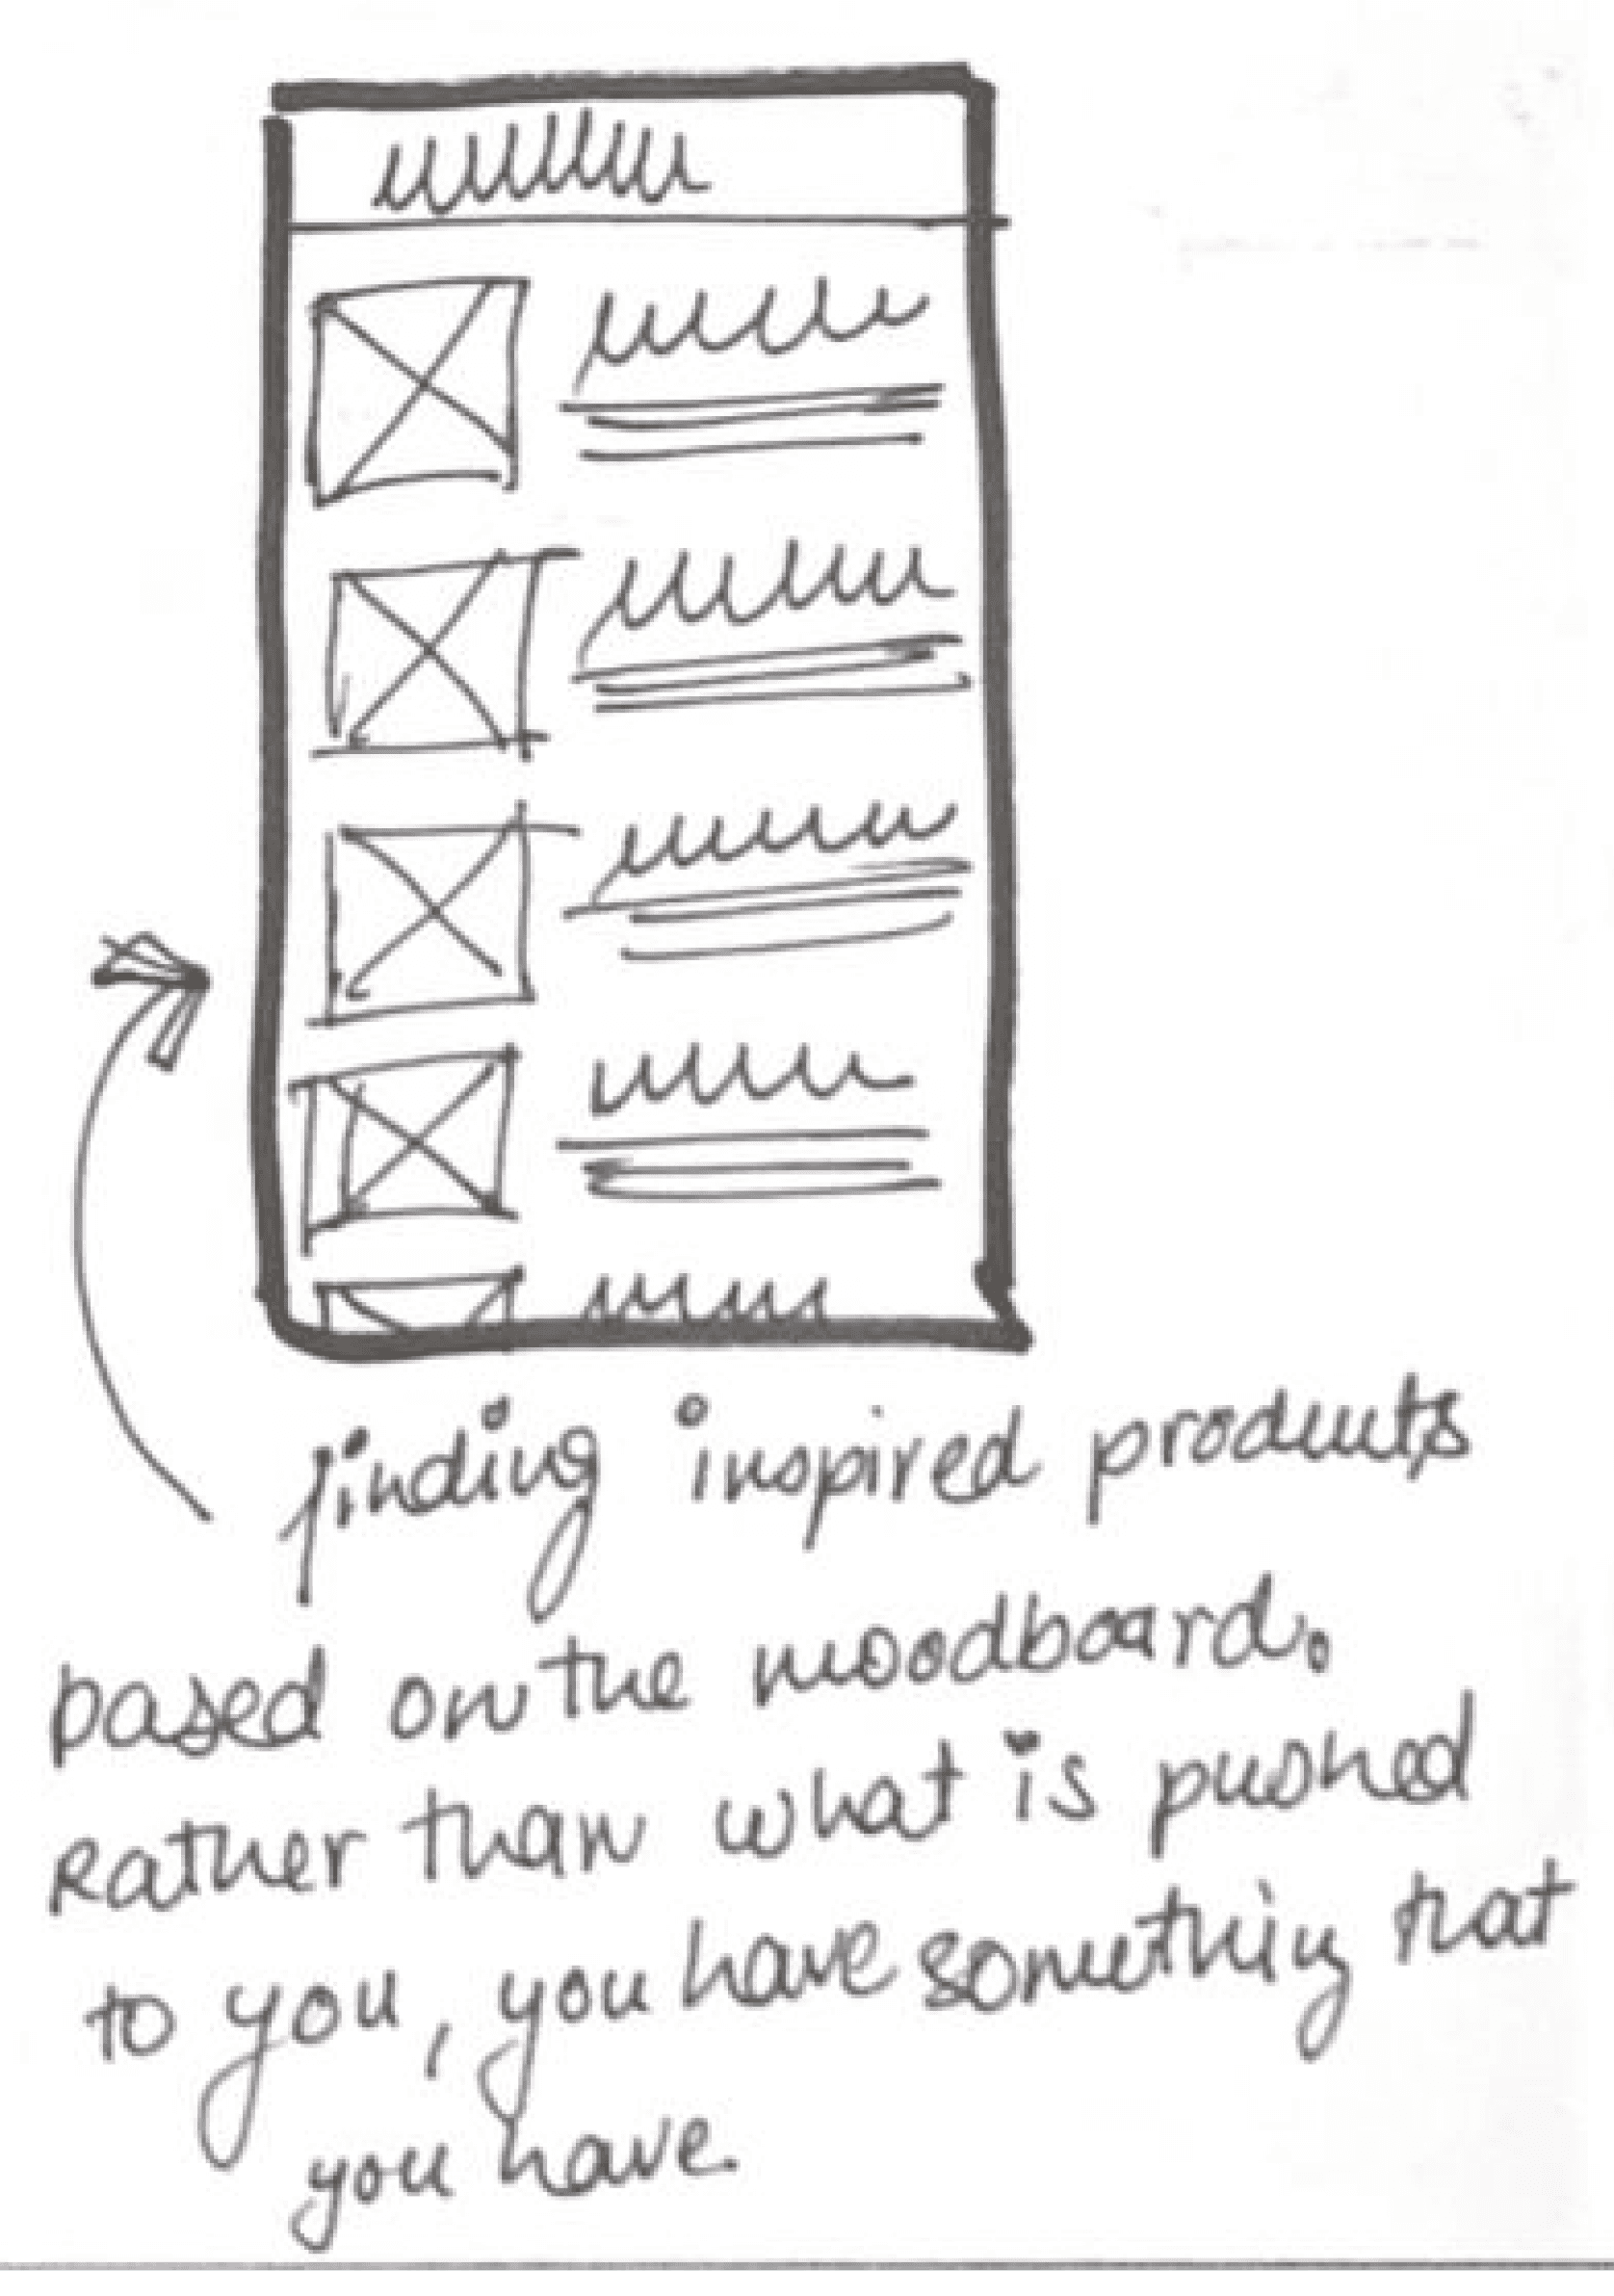 finding inspired products
based on the moodboard.
Rather than what is pushed
to you, you have something that
you have.